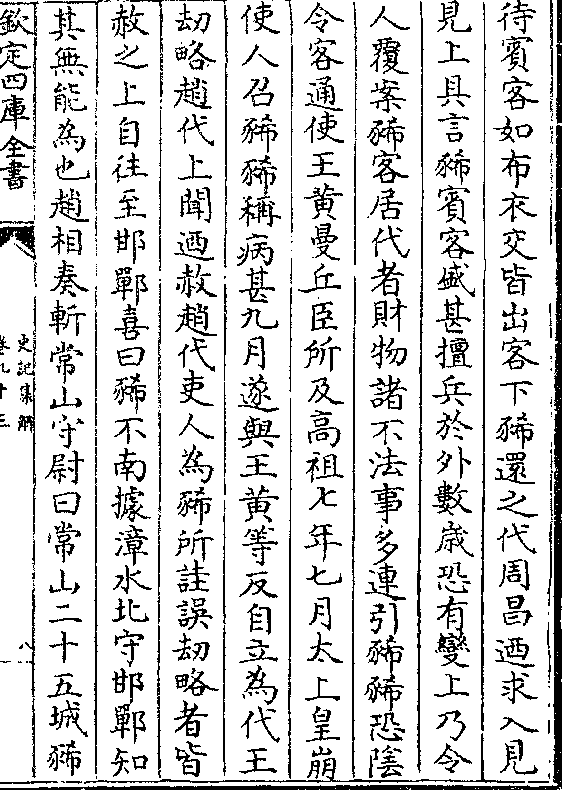 待賓客如布衣交皆出客下豨還之代周昌迺求入見
見上具言豨賓客盛甚擅兵於外數歳恐有變上乃令
人覆案豨客居代者財物諸不法事多連引豨豨恐隂
令客通使王黄曼丘臣所及高祖七年七月太上皇崩
使人召豨豨稱病甚九月遂與王黄等反自立為代王
刧略趙代上聞迺赦趙代吏人為豨所詿誤刧略者皆
赦之上自往至邯鄲喜曰豨不南據漳水北守邯鄲知
其無能為也趙相奏斬常山守尉曰常山二十五城豨
欽定四庫全書
史記集解
卷九十三
八